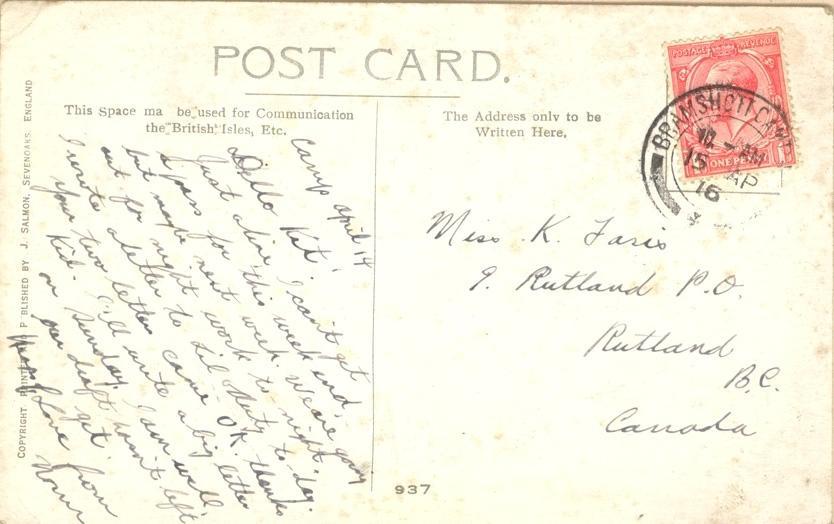 POST CARD.
This Space ma be used for Communication
the British Isles, Etc.
The Address only to be
Written Here.
POSTAGE REVENUE
ONE PENNY
BRAMSHOTT CAMP
15 AP
16
Camp April 14
Hello Kit!
Just a line. I can't get
a pass for this week end,
but maybe next week. We are going
out for night work to night.
I wrote a letter to Lil Duty to-day.
your two letters came OK. thanks
Kid. I'll write a big letter
on Sunday. I am well,
our draft hasn't left
yet.
Heaps Love from
Norm
Miss K. Faris
Rutland P.O.
Rutland
B.C.
Canada
COPYRIGHT PRINTED P BLISHED BY J. SALMON, SEVENOAKS, ENGLAND
937